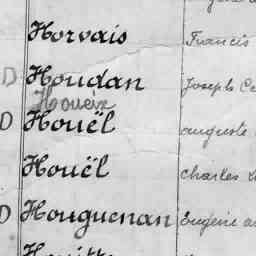 Horvais Francis
D Houdan Joseph
Houeix
D Houël auguste
Houël charles
D Houguenan Eugène